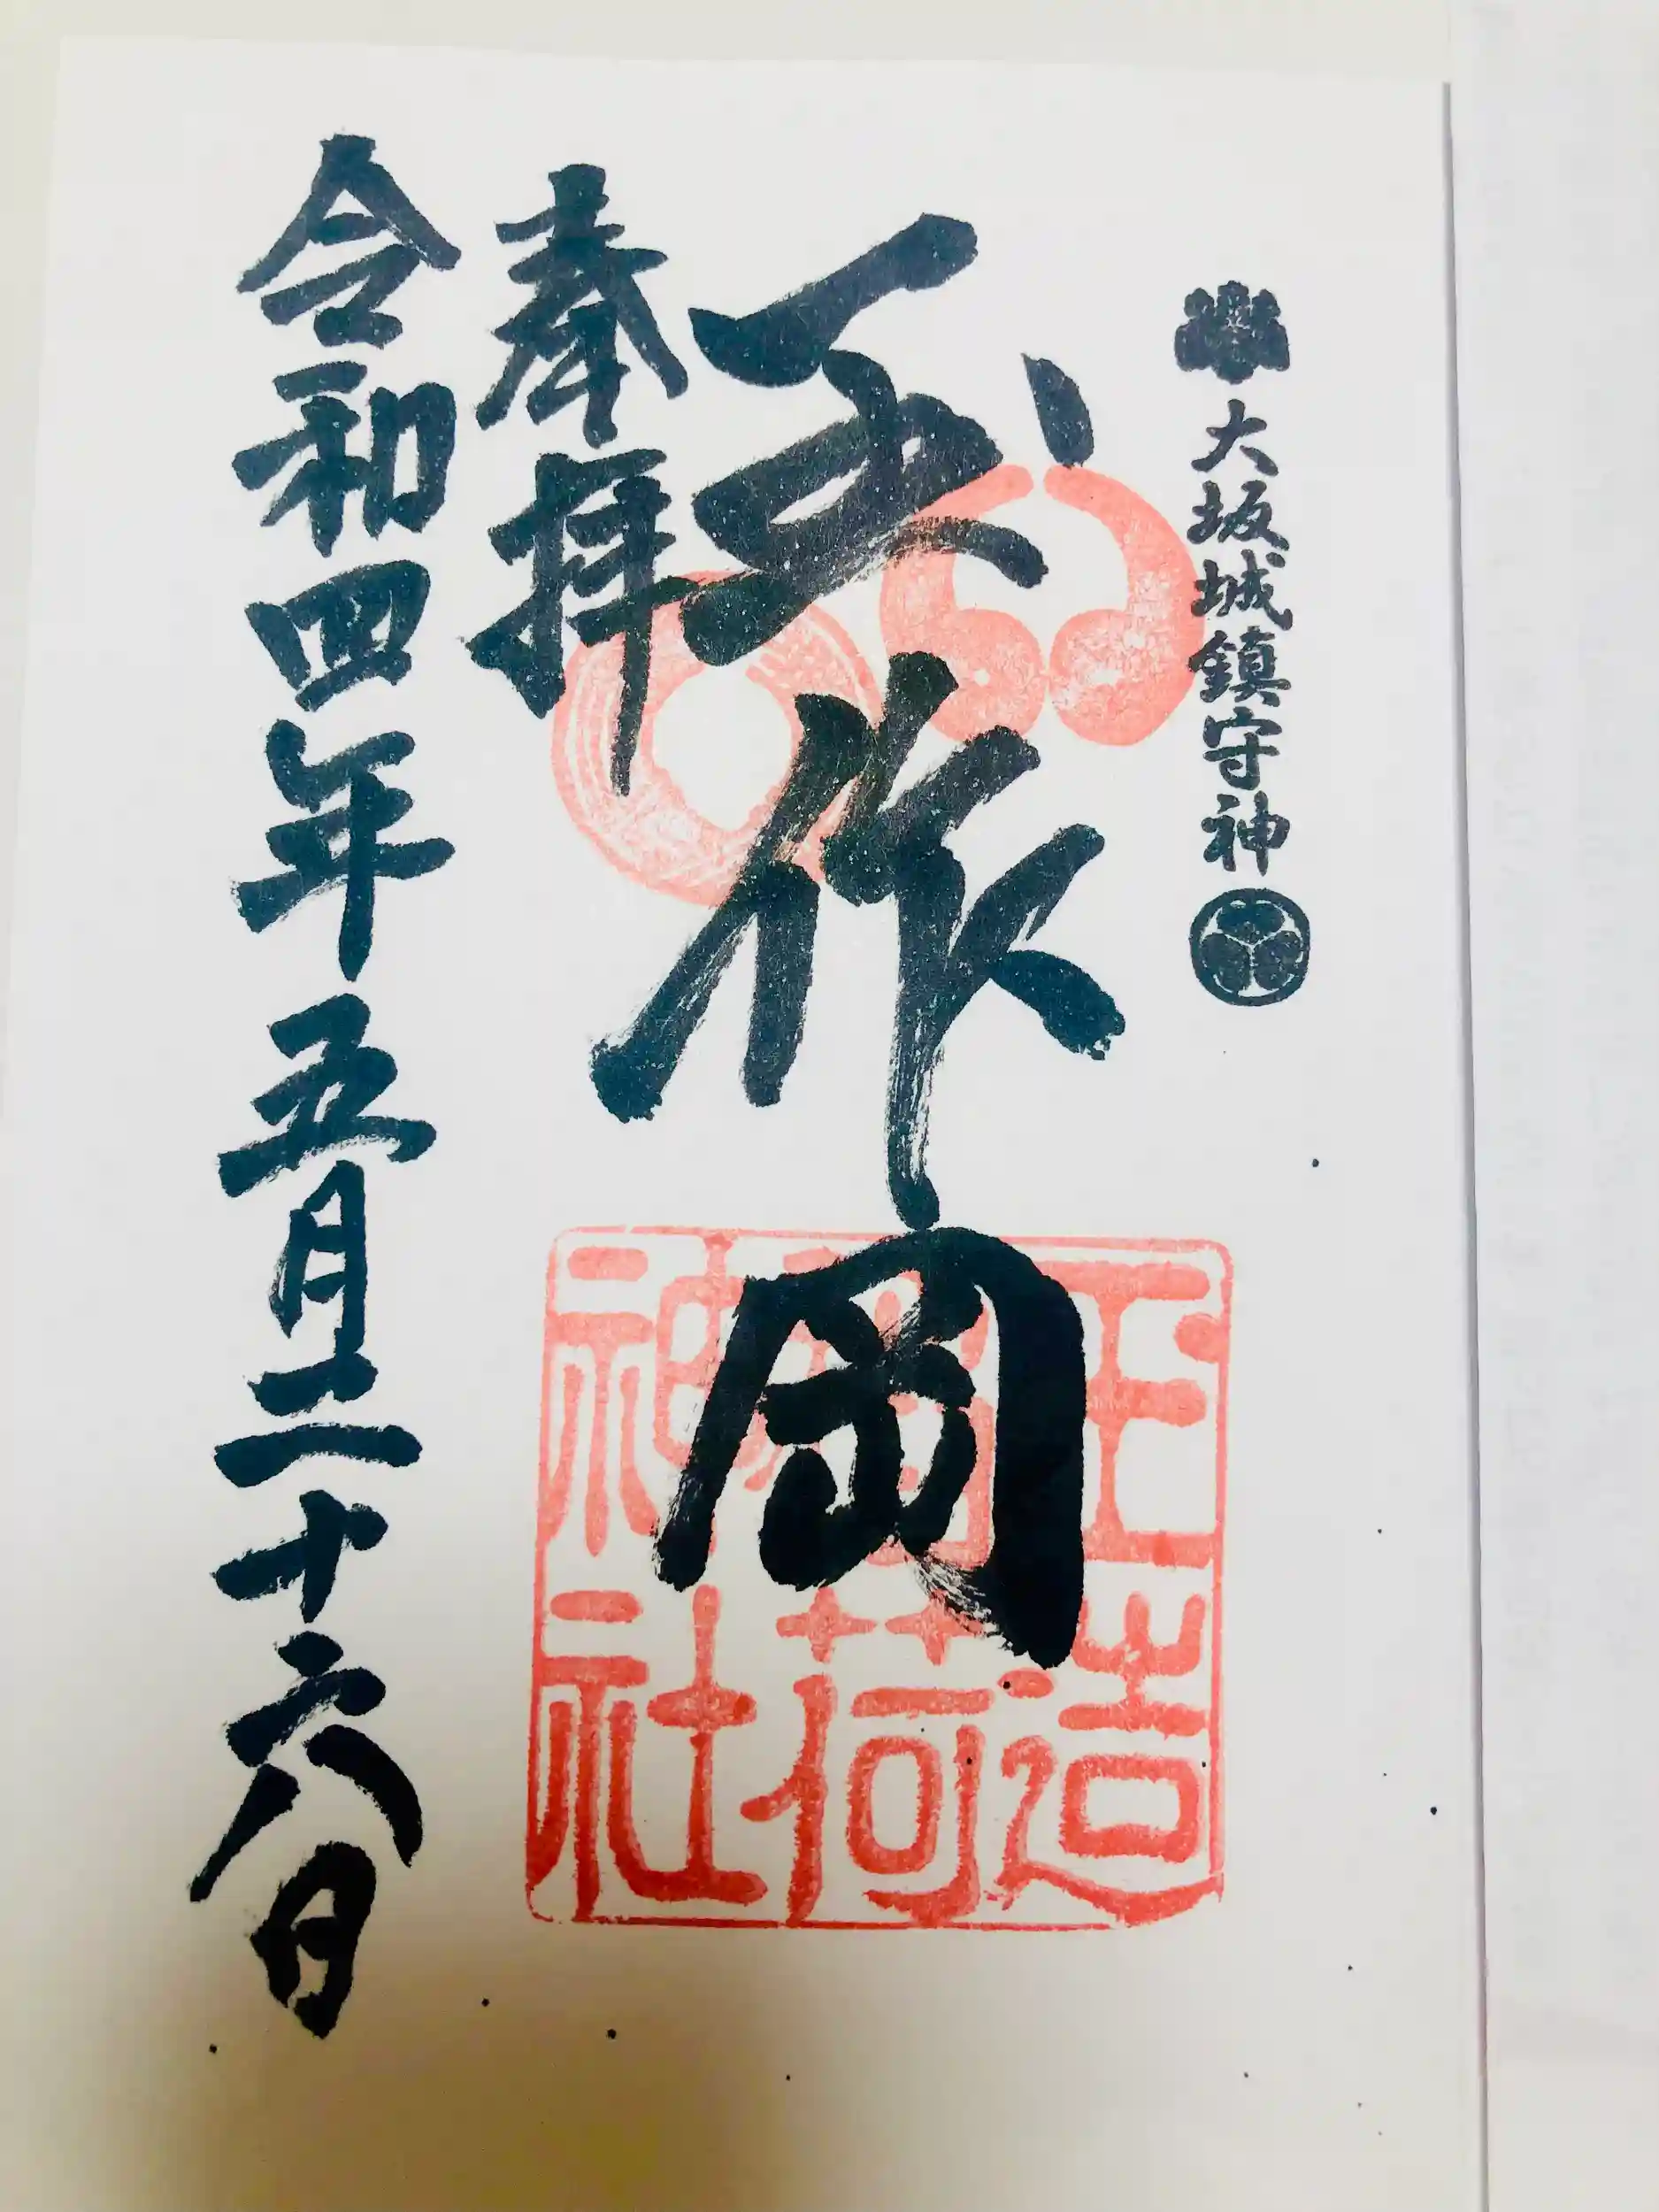 大坂城鎮守神
玉作岡
奉拝
令和四年五月二十六日
玉造
稲荷
神社